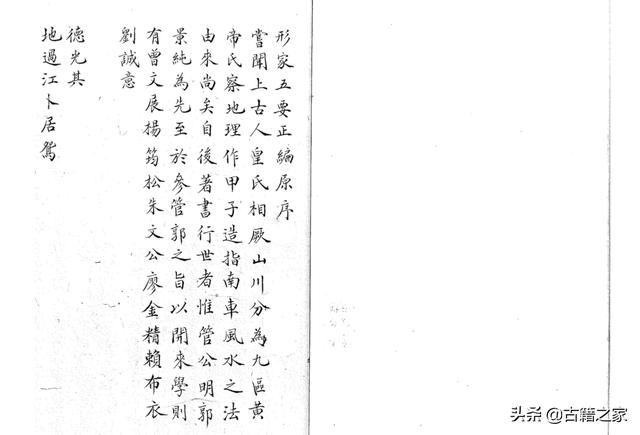 形家五要正編原序
嘗聞上古人皇氏相厥山川分為九區黃
帝氏察地理作甲子造指南車風水之法
由來尚矣自後著書行世者惟管公明郭
景純為先至於參管郭之旨以開來學則
有曾文展楊筠松朱文公廖金精賴布衣
劉誠意
德光其
地過江卜居鴛
头条@古籍之家